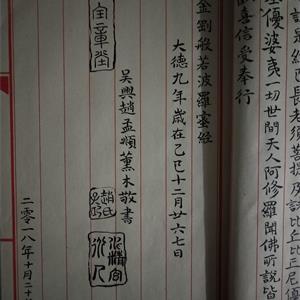 是經長老須菩提及諸比丘比丘尼優
優婆夷一切世間天人阿修羅聞佛所說皆
歡喜信受奉行
金剛般若波羅蜜經
大德九年歲在乙巳十二月廿六七日
吳興趙孟頫薰木敬書
趙氏
二零一八年十月二十